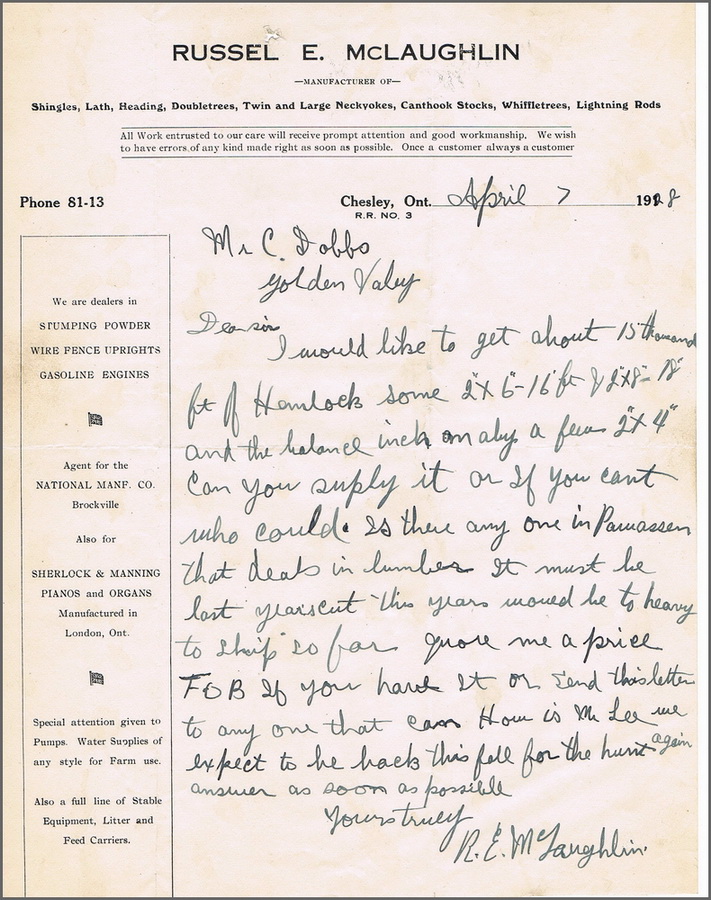 RUSSEL E. McLAUGHLIN
—MANUFACTURER OF—
Shingles, Lath, Heading, Doubletrees, Twin and Large Neckyokes, Canthook Stocks, Whiffletrees, Lightning Rods
All Work entrusted to our care will receive prompt attention and good workmanship. We wish
to have errors of any kind made right as soon as possible. Once a customer always a customer
Phone 81-13
Chesley, Ont. April 7 1928
R.R. NO. 3
We are dealers in
STUMPING POWDER
WIRE FENCE UPRIGHTS
GASOLINE ENGINES
Agent for the
NATIONAL MANF. CO.
Brockville
Also for
SHERLOCK & MANNING
PIANOS and ORGANS
Manufactured in
London, Ont.
Special attention given to
Pumps. Water Supplies of
any style for Farm use.
Also a full line of Stable
Equipment, Litter and
Feed Carriers.
Mr C. Dobbs
Golden Valey
Dear sir
I would like to get about 15 thousand
ft of Hemlock some 2"x 6"-16 ft & 2"x8"- 18"
and the balance inch a few 2"x 4"
Can you suply it or If you cant
who could. Is there any one in
that deals in lumber It must be
last years cut this years would be to heavy
to ship so far quore me a price
F O B If you have It or send this letter
to any one that can How is Mr Lee we
expect to be back this fall for the hunt again
answer as soon as possible
Yours truly
R. E. McLaughlin.